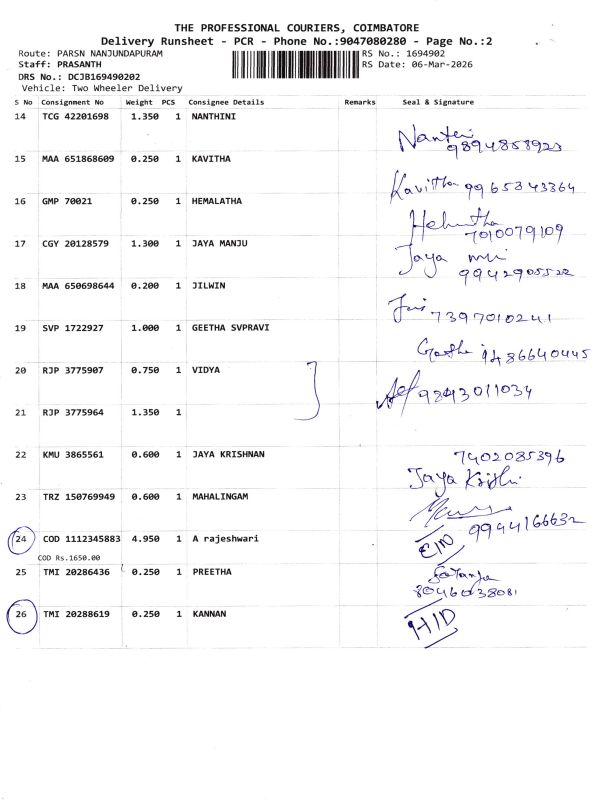 THE PROFESSIONAL COURIERS, COIMBATORE
Delivery Runsheet - PCR - Phone No.:9047080280 - Page No.:2
Route: PARSN NANJUNDAPURAM RS No.: 1694902
Staff: PRASANTH RS Date: 06-Mar-2026
DRS No.: DCJB169490202
Vehicle: Two Wheeler Delivery
S No Consignment No Weight PCS Consignee Details Remarks Seal & Signature
14 TCG 42201698 1.350 1 NANTHINI
9894858923
15 MAA 651868609 0.250 1 KAVITHA
Kavitha 9965343364
16 GMP 70021 0.250 1 HEMALATHA
7010079109
17 CGY 20128579 1.300 1 JAYA MANJU
Jaya
9942905522
18 MAA 650698644 0.200 1 JILWIN
7397010241
19 SVP 1722927 1.000 1 GEETHA SVPRAVI
9486640445
20 RJP 3775907 0.750 1 VIDYA
9843011034
21 RJP 3775964 1.350 1
22 KMU 3865561 0.600 1 JAYA KRISHNAN
7402085396
Jaya
23 TRZ 150769949 0.600 1 MAHALINGAM
9944166632
24 COD 1112345883 4.950 1 A rajeshwari
COD Rs.1650.00
25 TMI 20286436 0.250 1 PREETHA
8046038081
26 TMI 20288619 0.250 1 KANNAN